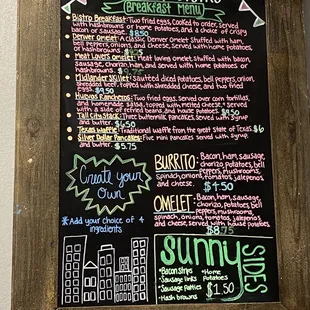 Breakfast Menu
Bistro Breakfast: Two fried eggs, cooked to order, served
with hashbrowns or home potatoes, and a choice of crispy
bacon or sausage. $8.50
Denver Omelet: A classic Denver omelet stuffed with ham,
bell peppers, onions, and cheese, served with home potatoes,
or hashbrowns.
Meat Lovers Omelet: Meat loving omelet, stuffed with bacon,
sausage, chorizo, ham, and served with home potatoes or
hashbrowns.
Midlander Skillet: Sautéed diced potatoes, bell peppers, onion,
shredded beef, topped with shredded cheese, and two fried
eggs. $9.50
Huevos Rancheros: Two fried eggs, served over corn tortillas,
and homemade salsa, topped with melted cheese, served
with a side of refried beans and house potatoes.
Tall City Stack: Three buttermilk pancakes, served with syrup
and butter. $6.50
Texas Waffle: Traditional waffle from the great state of Texas $6
Silver Dollar Pancakes: Five mini pancakes served with syrup
and butter. $5.75
Create Your
Own
*Add your choice of 4
ingredients
BURRITO: Bacon, ham, sausage,
chorizo, potatoes, bell
peppers, mushrooms,
spinach, onions, tomatoes, jalapenos
and cheese. $4.50
OMELET: Bacon, ham, sausage,
chorizo, potatoes, bell
peppers, mushrooms,
spinach, onions, tomatoes, jalapenos
and cheese, served with house potatoes
$8.75
Sunny SIDES
•Bacon strips •Home
•Sausage links Potatoes
•Sausage patties $1.50
•Hash browns